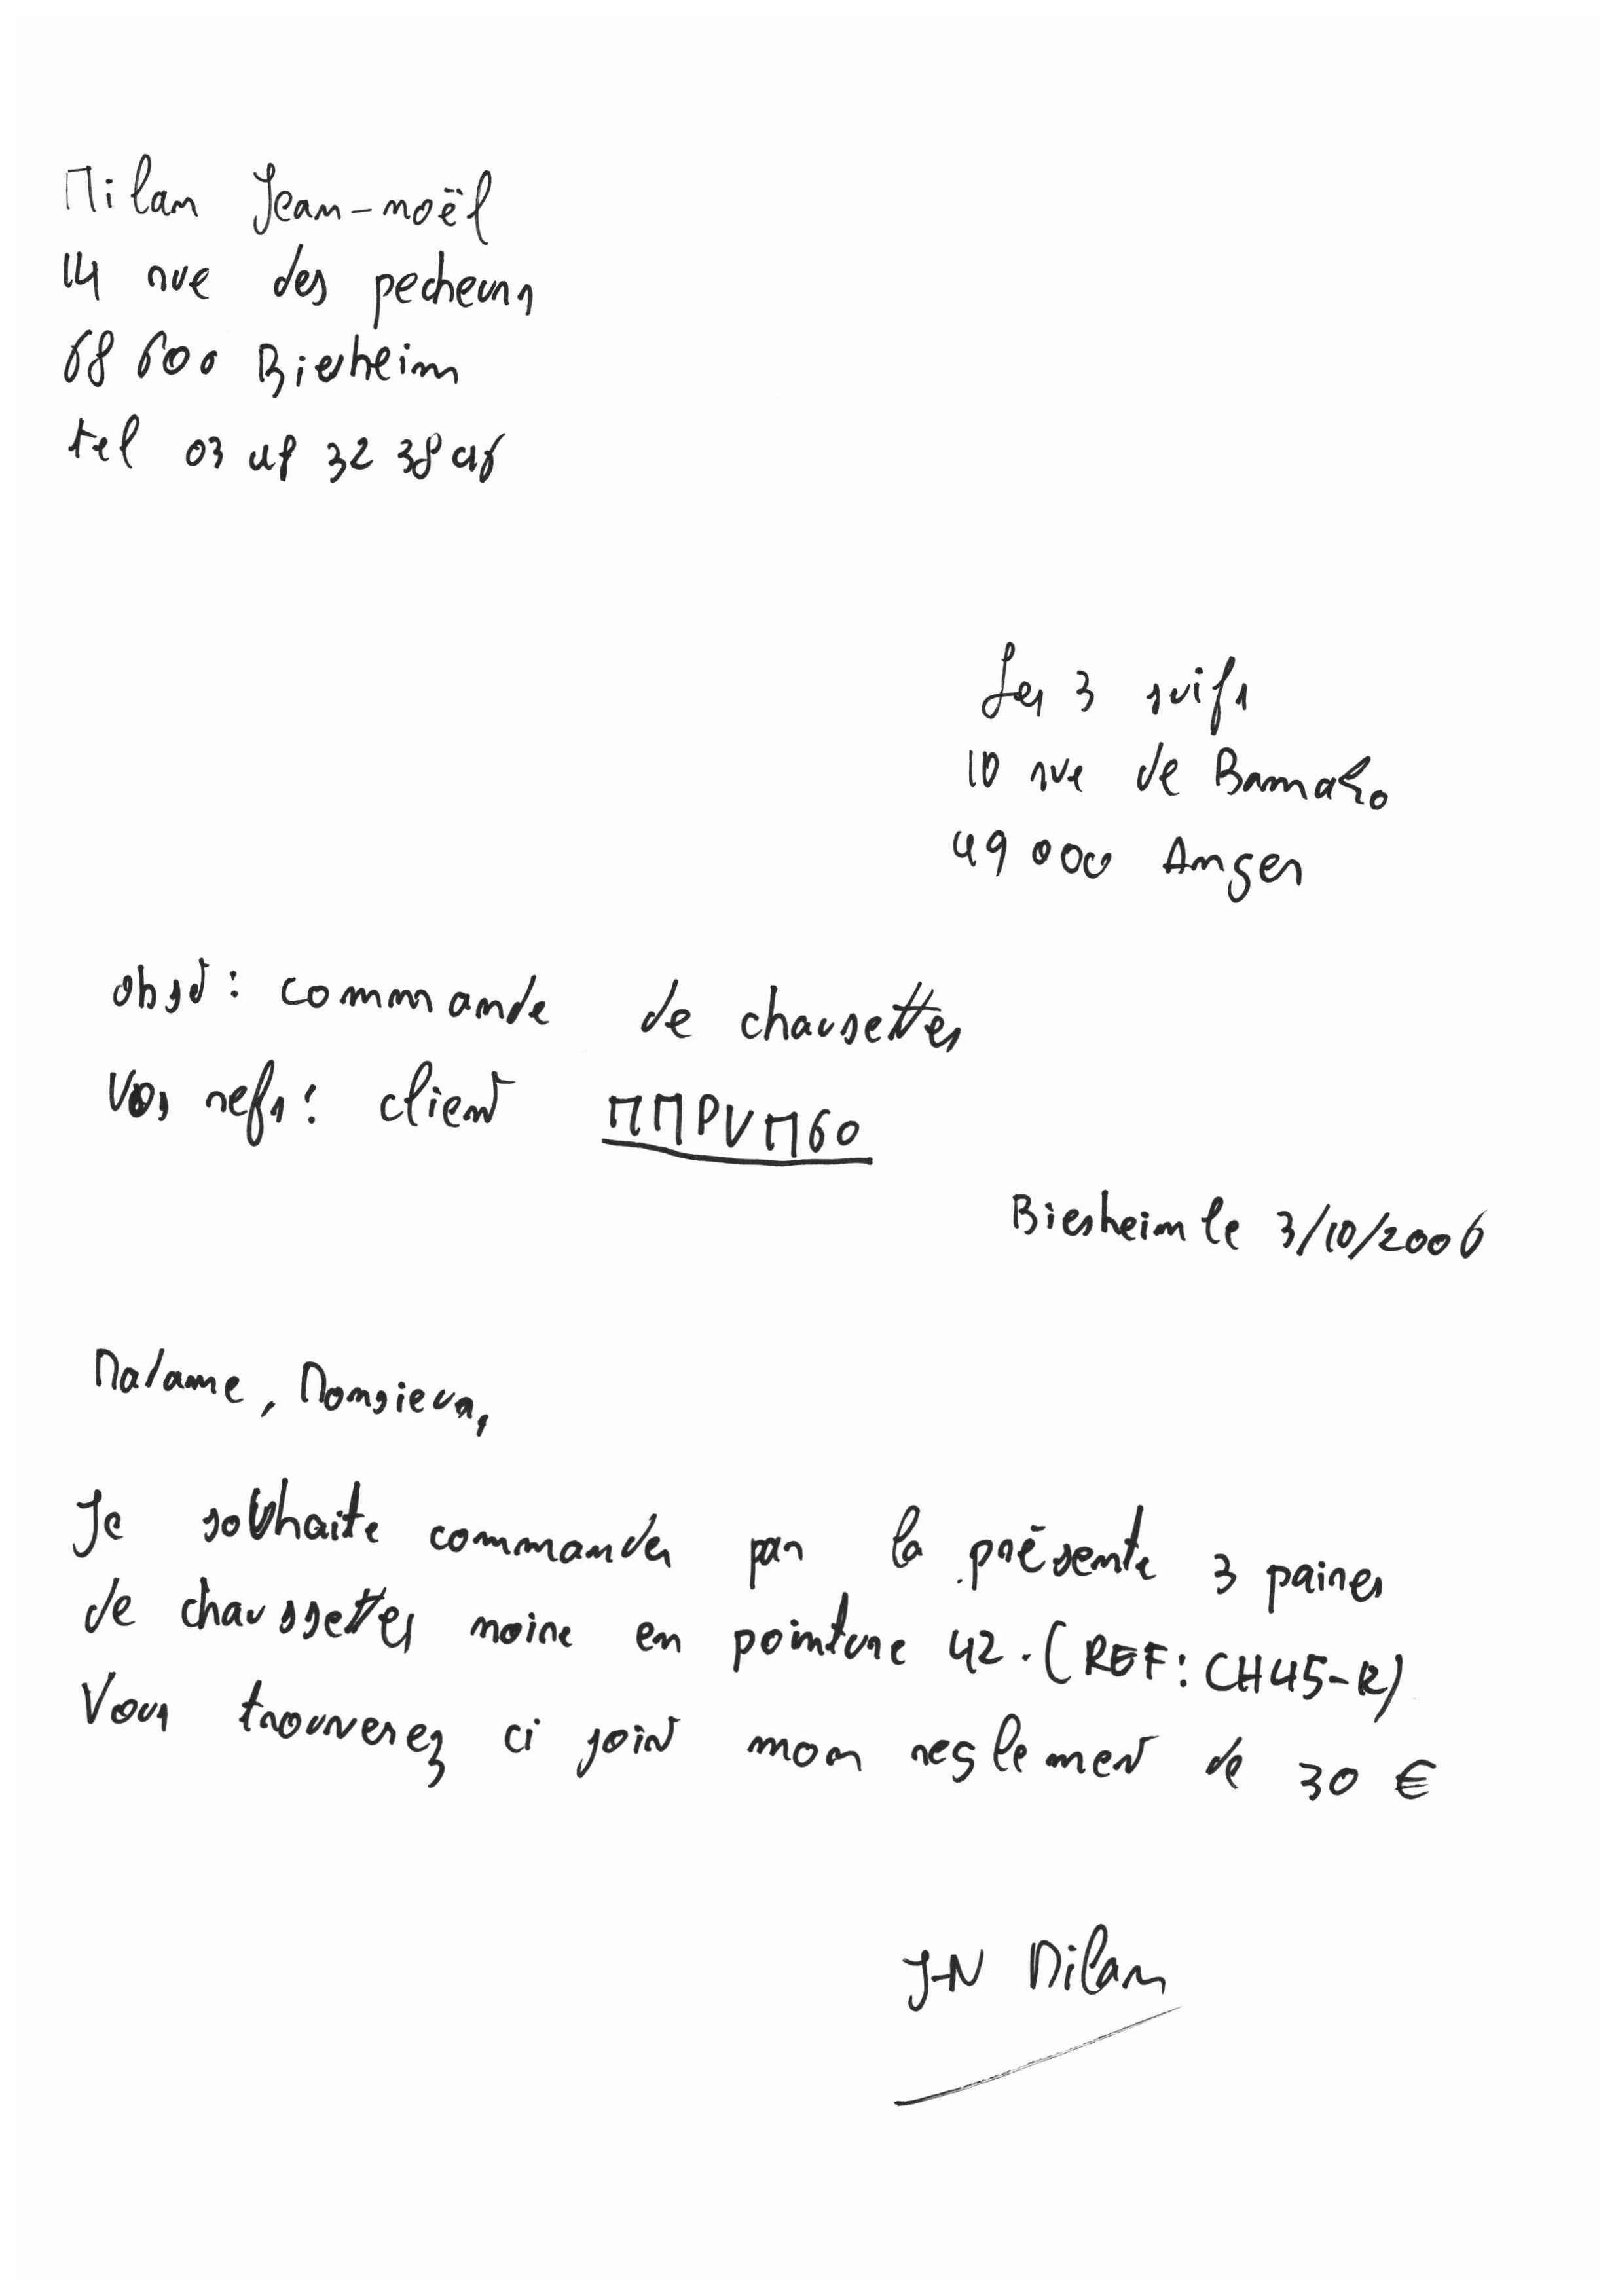 Milan Jean-noël
14 rue des pecheurs
68 600 Biesheim
tel 03 48 32 38 46
Les 3 suifs
10 rue de Bamako
49 000 Angers
objet : commande de chaussettes
Vos refs : client MMPVM60
Biesheim le 3/10/2006
Madame, Monsieur,
Je souhaite commander par la présente 3 paires
de chaussettes noire en pointure 42. (REF: CH45-R)
Vous trouverez ci joint mon reglement de 30 €
J-N Milan